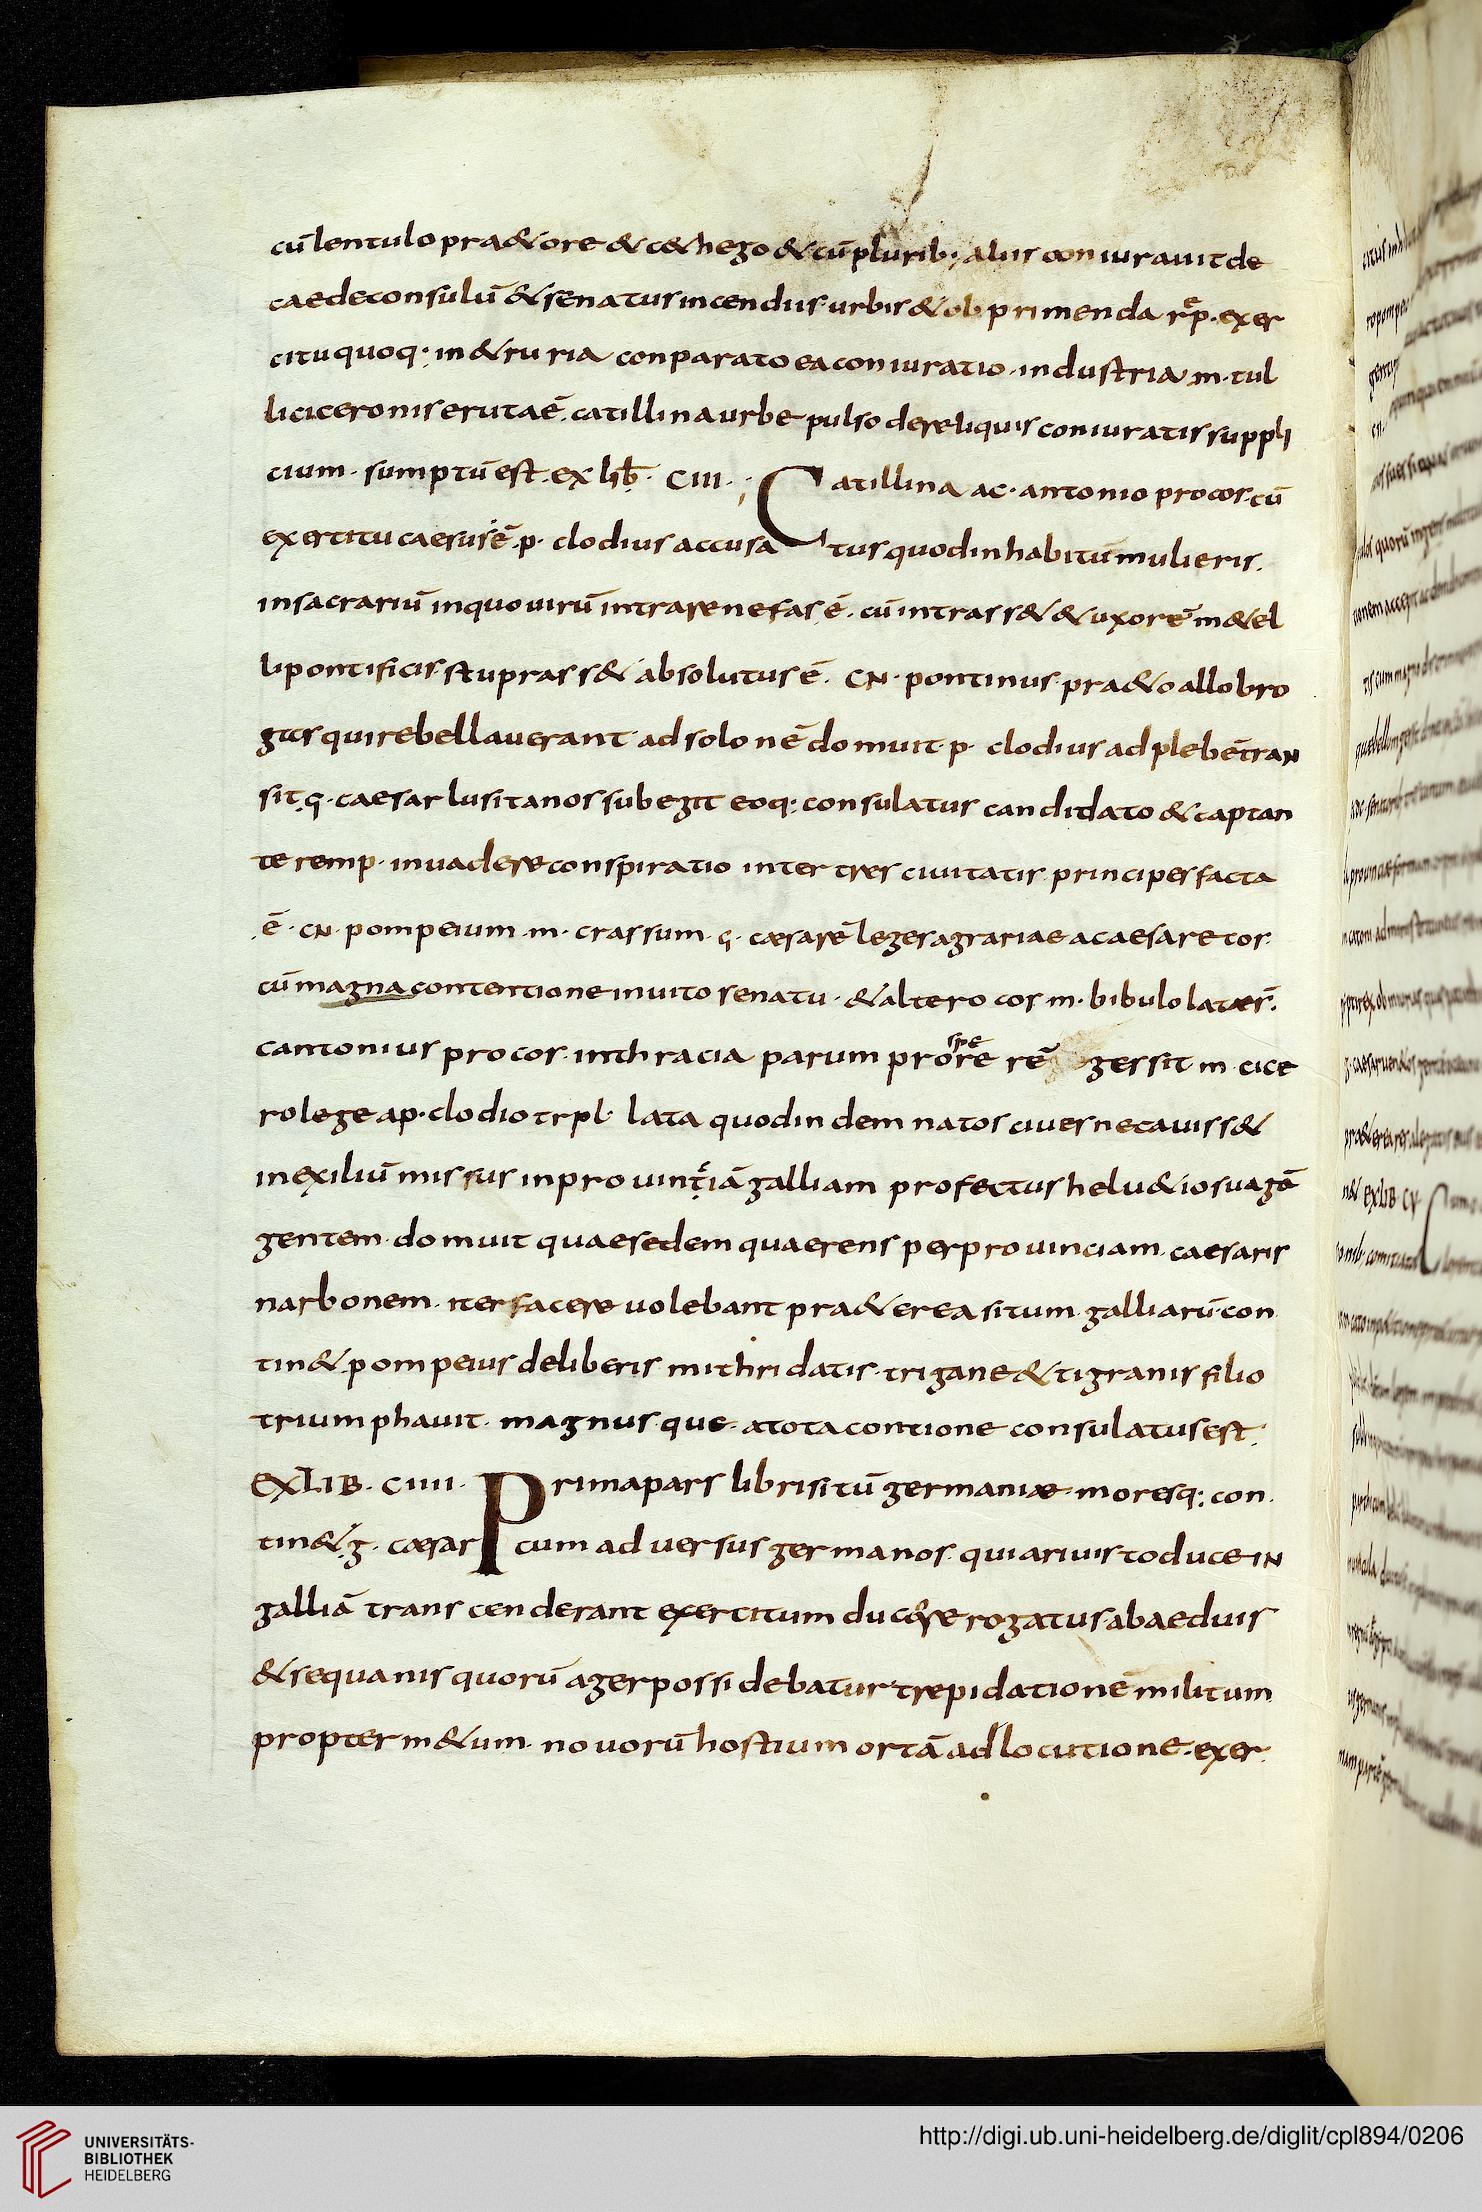 cū lentulo pra&ore & c&hego & cū plurib; aliis coniurauit de
caede consulū & senatus incendiis urbis & obprimenda rēp. exer
citu quoq; in &ruria conparato ea coniuratio industria m. tul
li ciceronis eruta ē. catillina urbe pulso de reliquis coniuratis suppli
cium sumptū est. ex lib. CIII. Catillina ac. antonio procos. cū
exercitu caesus ē. p. clodius accusatus quod in habitū mulieris.
in sacrariū in quo uirū intrare nefas ē. cū intrass& & uxorē m&el
li pontificis stuprass& absolutus ē. CN. pontinus pra&o allobro
gus qui rebellauerant ad solonē domuit p. clodius ad plebē tran
sit. ç. caesar lusitanos subegit eoq; consulatus candidato & captan
te remp. inuadere conspiratio inter tres ciuitatis principes facta
ē. CN. pompeium m. crassum. ç. cæsarē leges agrariae a caesare cos
cū magna contentione inuito senatu. & altero cos m. bibulo latæ s̄.
c antonius procos. in thracia parum prospere rē gessit m. cice
ro lege a p. clodio tr pl. lata quod indemnatos ciues necauiss&
in exiliū missus in prouintiā galliam profectus helu&ios uagā
gentem domuit quae sedem quaerens per prouinciam caesaris
narbonem. iter facere uolebant pra&erea situm galliarū con
tin& pompeius de liberis mithridatis. trigane & tigranis filio
triumphauit. magnus que. a tota contione consulatus est.
EX LIB. CIIII. Prima pars libri sitū germaniæ moresq; con
tin&. g. cæsar cum aduersus germanos. qui ariuisto duce in
galliā transcenderant exercitum duceret rogatus ab aeduis
& sequanis quorū ager possidebatur trepidationē militum
propter m&um nouorū hostium ortā adlocutione. exer
UNIVERSITÄTS-
BIBLIOTHEK
HEIDELBERG
http://digi.ub.uni-heidelberg.de/diglit/cpl894/0206